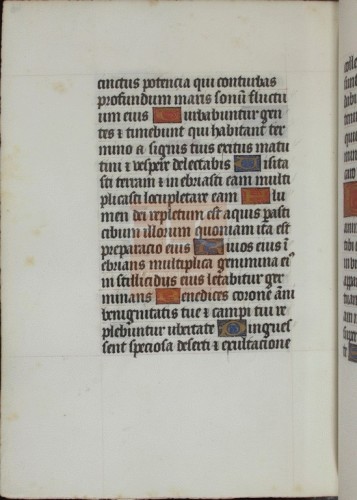 cinctus potencia qui conturbas
profundum maris sonū fluctu
um eius Turbabuntur gen
tes & timebunt qui habitant ter
mino a signis tuis exitus matu
tini & vespere delectabis Visita
sti terram & inebriasti eam multi
plicasti locupletare eam Flu
men dei repletum est aquis parasti
cibum illorum quoniam ita est
preparacio eius Rivos eius ī
ebrians multiplica genimina ei⁹
in stillicidiis eius letabitur ger
minans Benedices corone āni
benignitatis tue & campi tui re
plebuntur ubertate Pinguess
sent speciosa deserti & exultacione